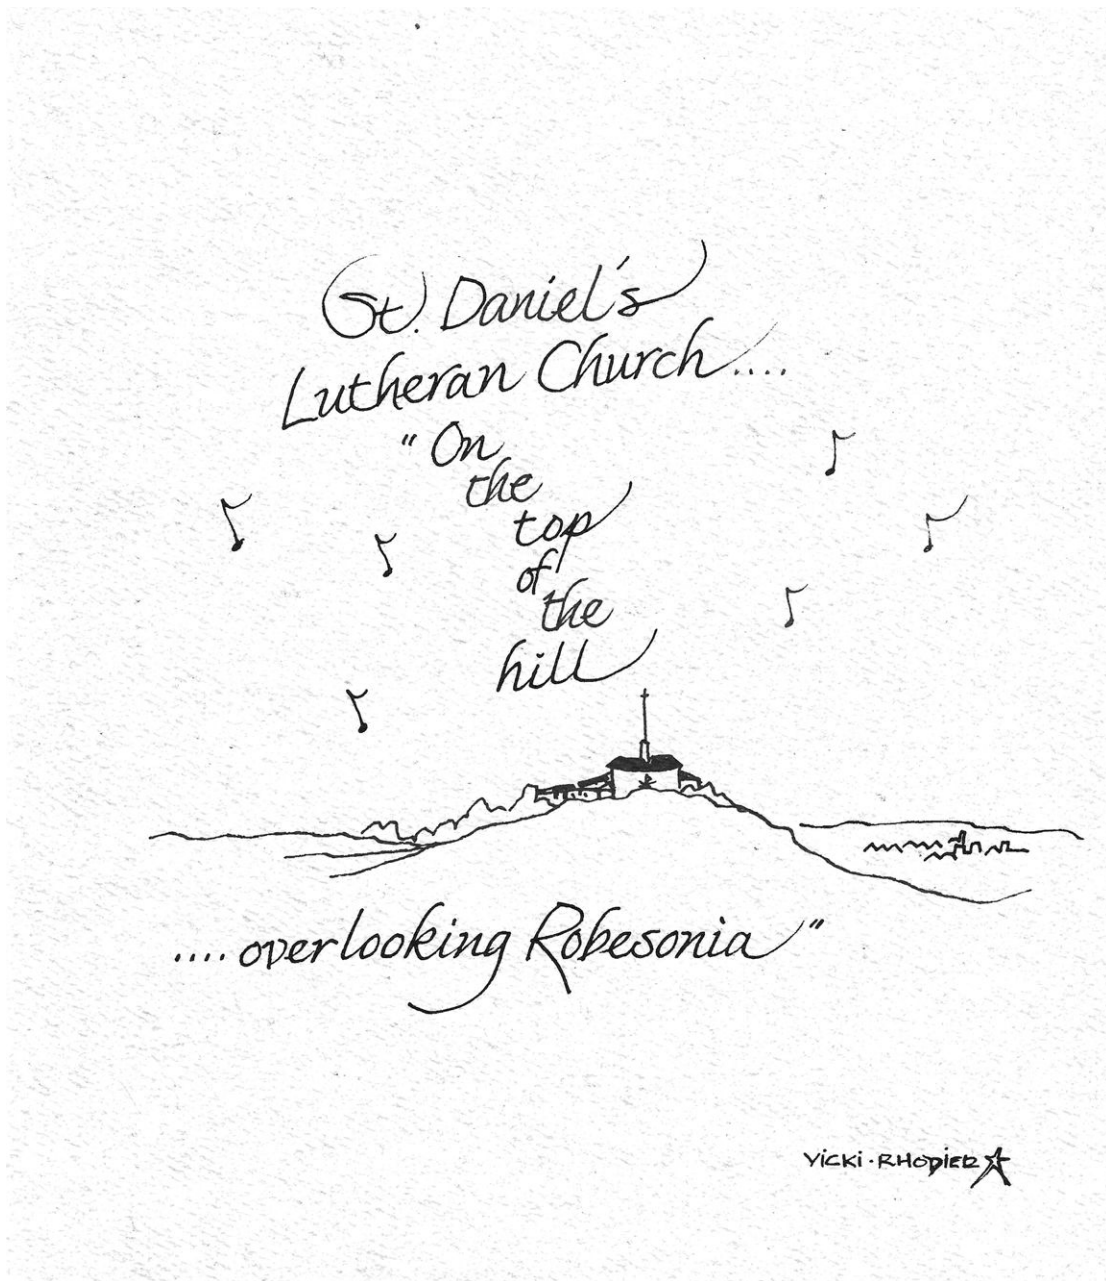 St. Daniel's
Lutheran Church....
"On
the
top
of
the
hill
....overlooking Robesonia"
VICKI · RHODIER